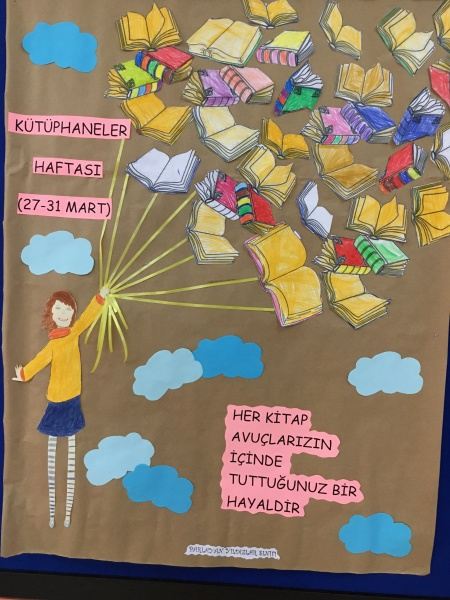 KÜTÜPHANELER
HAFTASI
(27-31 MART)
HER KİTAP
AVUÇLARIZIN
İÇİNDE
TUTTUĞUNUZ BİR
HAYALDİR
PARLAYAN YILDIZLAR SINIFI